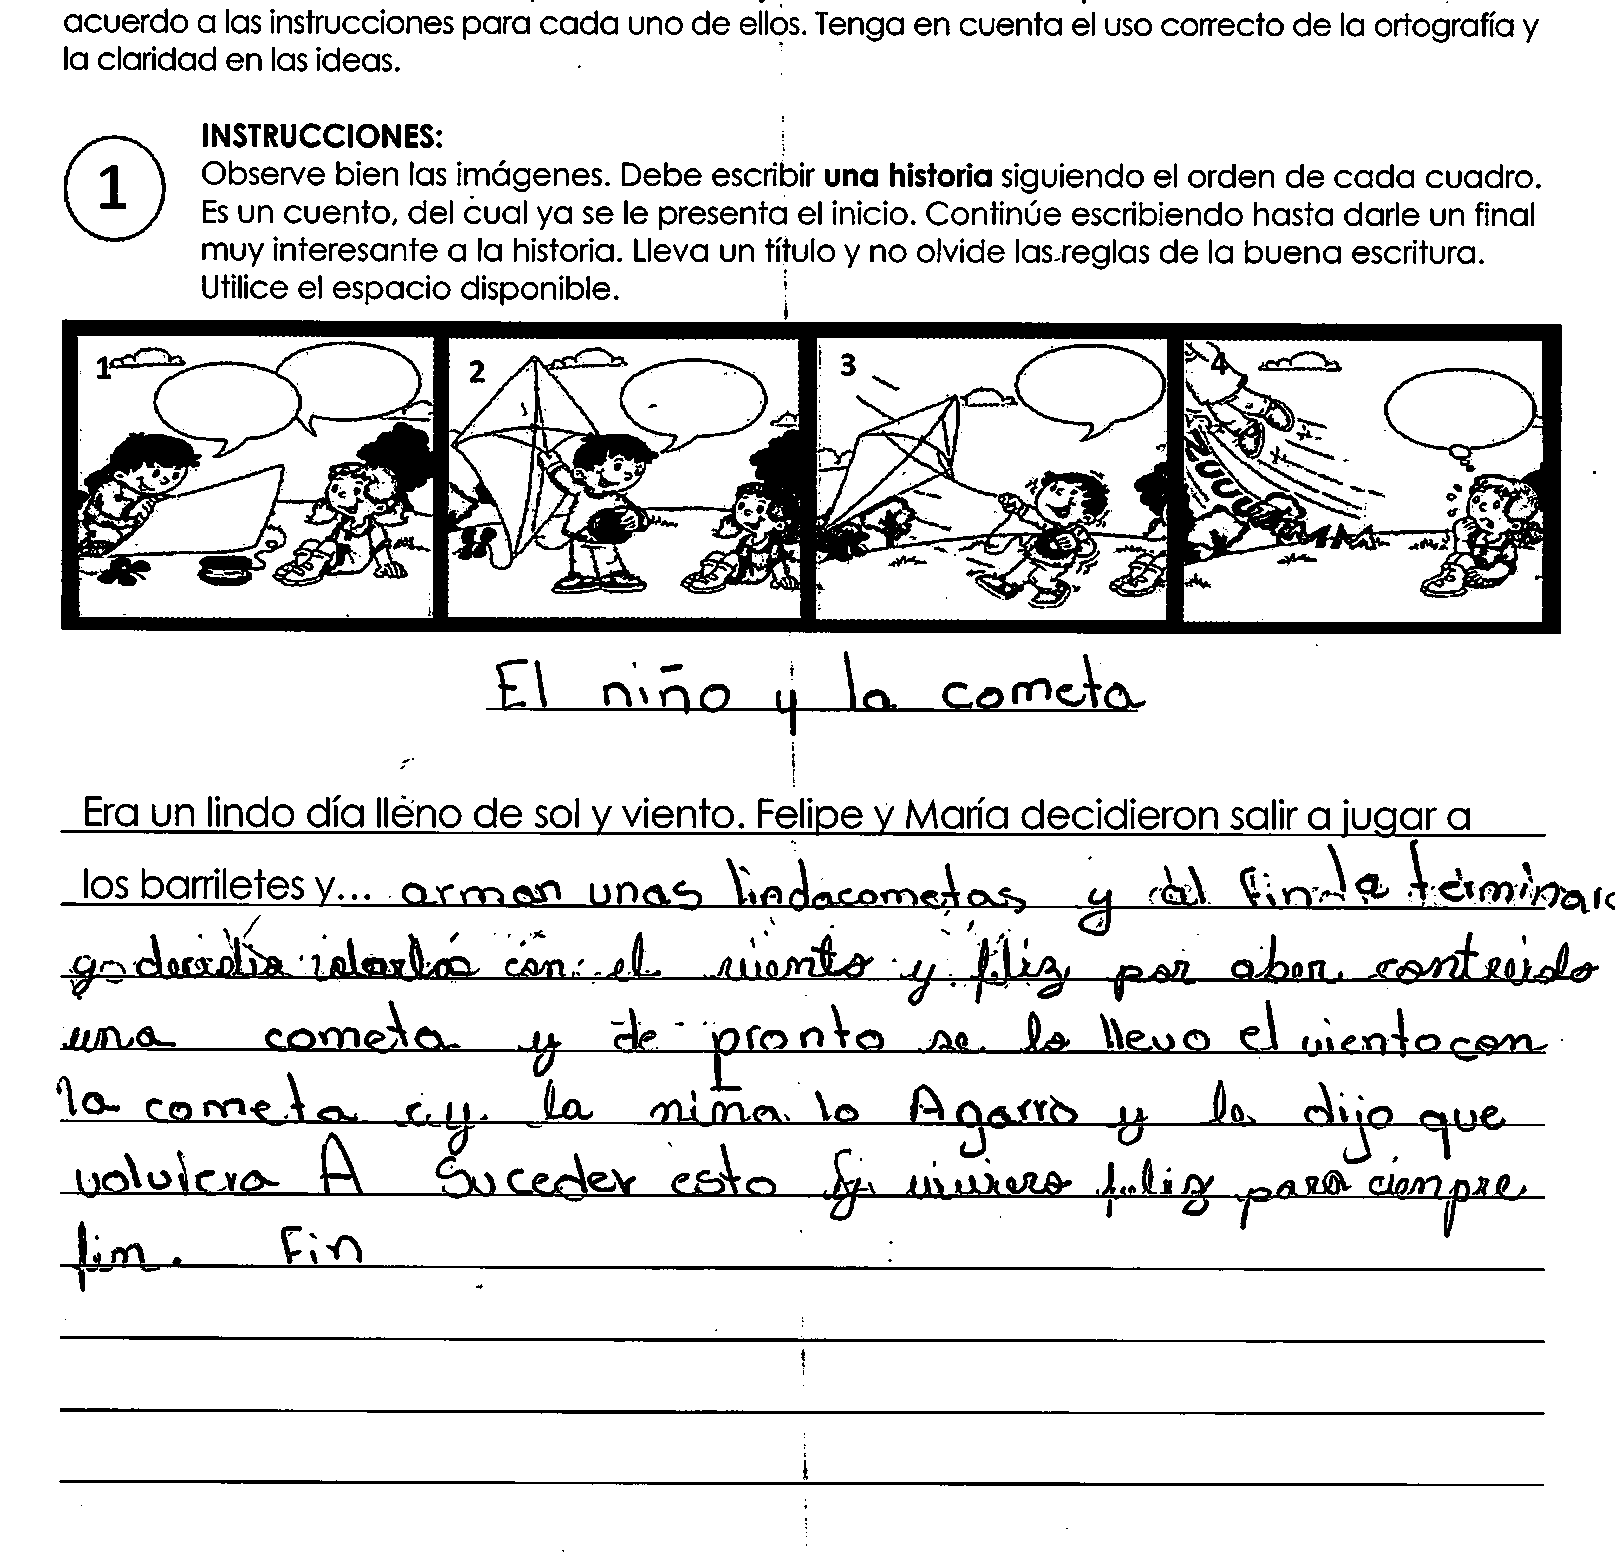 acuerdo a las instrucciones para cada uno de ellos. Tenga en cuenta el uso correcto de la ortografía y
la claridad en las ideas.
INSTRUCCIONES:
1
Observe bien las imágenes. Debe escribir una historia siguiendo el orden de cada cuadro.
Es un cuento, del cual ya se le presenta el inicio. Continúe escribiendo hasta darle un final
muy interesante a la historia. Lleva un título y no olvide las reglas de la buena escritura.
Utilice el espacio disponible.
1 2 3 4
El niño y la cometa
Era un lindo día lleno de sol y viento. Felipe y María decidieron salir a jugar a
los barriletes y... arman unas lindacometas y al fin la terminaro
con el viento y fliz por aber contruido
una cometa y de pronto se lo llevo el viento con
la cometa y la niña lo Agarro y le dijo que
volviera A Suceder esto y viviero feliz para ciempre
fin. Fin